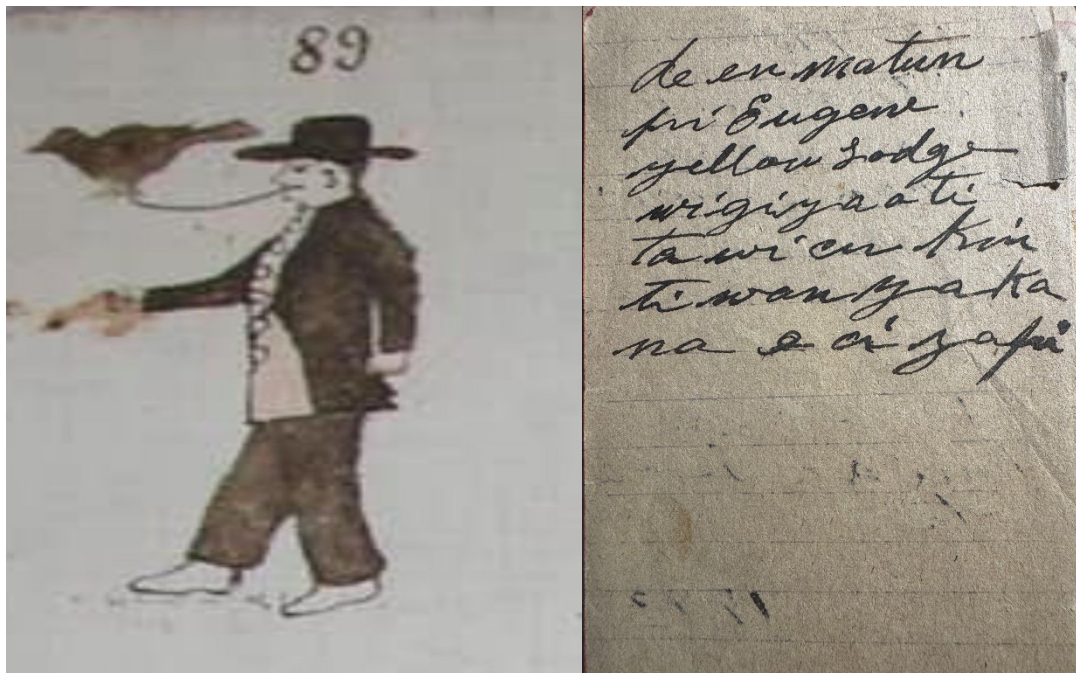 89
de en matun
pi Eugene
yellow Lodge
wigiya o ti
ta wi cu kin
ti wan ya ka
na e ci ya pi